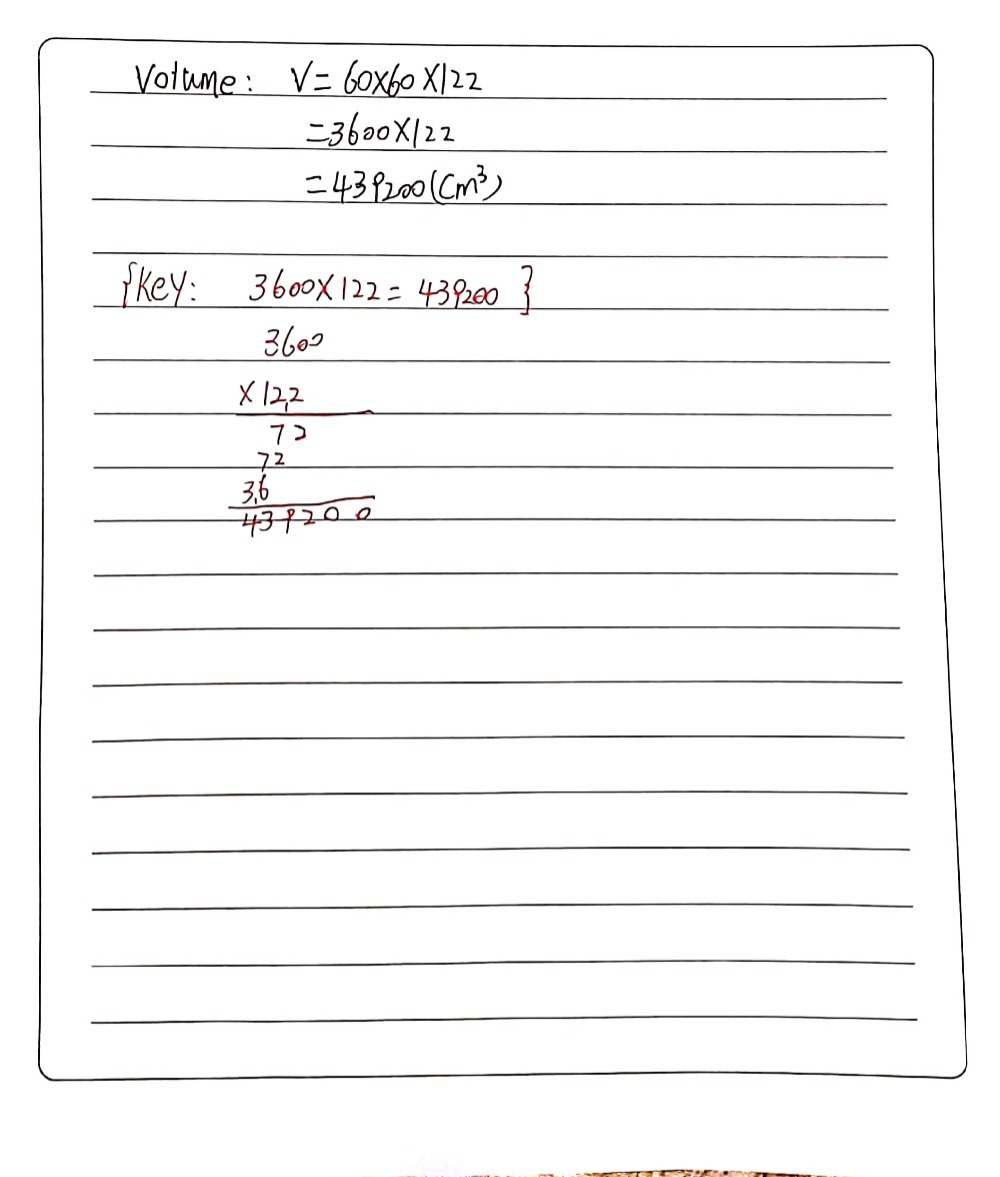 Volume: V= 60X60X122
=3600X122
=439200(Cm³)
{Key: 3600X122= 439200 }
3600
X 122
72
72
36
439200